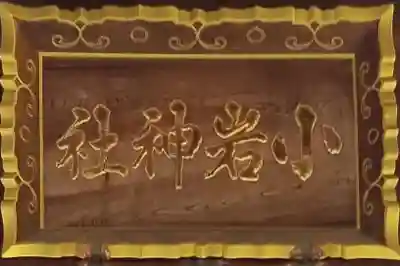 小岩神社